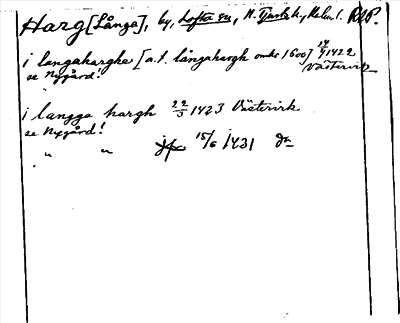 Harg [Långa], by, Lofta sn, N. Tjusts h., Kalm. l. RAP.
i langaharghe [a.t. långahargh omkr 1600] 14/9 1422
se Nygård! Västervik
i langga hargh 22/3 1423 Västervik
se Nygård!
" " 15/6 1431 do